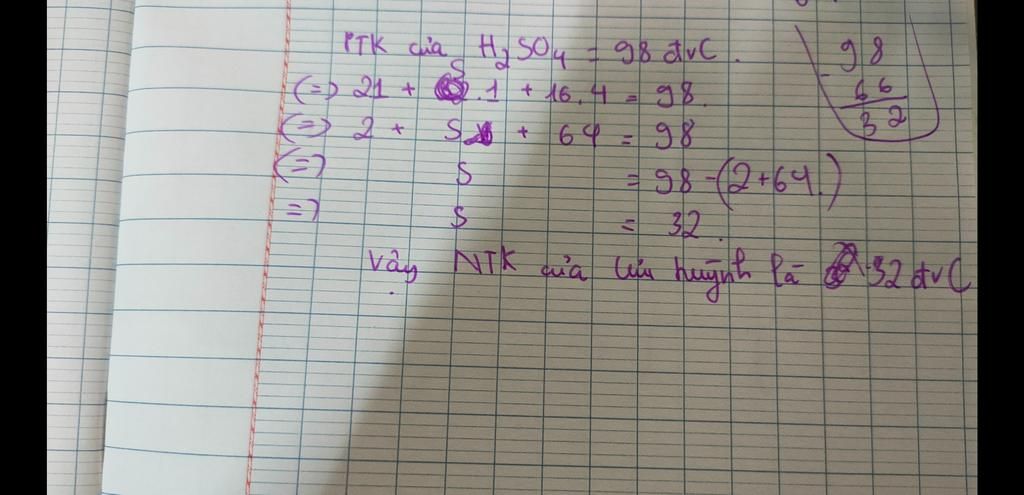 PTK của H2SO4 = 98 đvC.
(=) 21 + S.1 + 16.4 = 98.
(=) 2 + S + 64 = 98
(=) S = 98 - (2+64.)
=) S = 32.
Vậy NTK của lưu huỳnh là 32 đvC
98
- 66
32